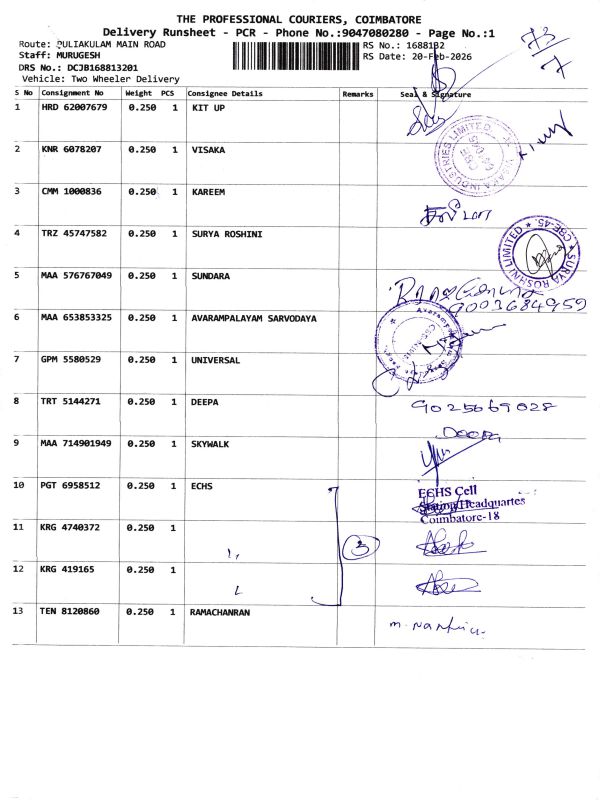 THE PROFESSIONAL COURIERS, COIMBATORE
Delivery Runsheet - PCR - Phone No.:9047080280 - Page No.:1
Route: PULIAKULAM MAIN ROAD
RS No.: 1688132
Staff: MURUGESH
RS Date: 20-Feb-2026
DRS No.: DCJB168813201
Vehicle: Two Wheeler Delivery
73/7
S No Consignment No Weight PCS Consignee Details Remarks Seal & Signature
1 HRD 62007679 0.250 1 KIT UP
2 KNR 6078207 0.250 1 VISAKA
VISAKA INDUSTRIES LIMITED
CBE
3 CMM 1000836 0.250 1 KAREEM
4 TRZ 45747582 0.250 1 SURYA ROSHINI
SURYA ROSHNI LIMITED * CBE-45. *
5 MAA 576767049 0.250 1 SUNDARA
9003684959
6 MAA 653853325 0.250 1 AVARAMPALAYAM SARVODAYA
7 GPM 5580529 0.250 1 UNIVERSAL
8 TRT 5144271 0.250 1 DEEPA
9025669028
Deepa
9 MAA 714901949 0.250 1 SKYWALK
10 PGT 6958512 0.250 1 ECHS
ECHS Cell
Station Headquartes
Coimbatore-18
11 KRG 4740372 0.250 1
3
12 KRG 419165 0.250 1
13 TEN 8120860 0.250 1 RAMACHANRAN